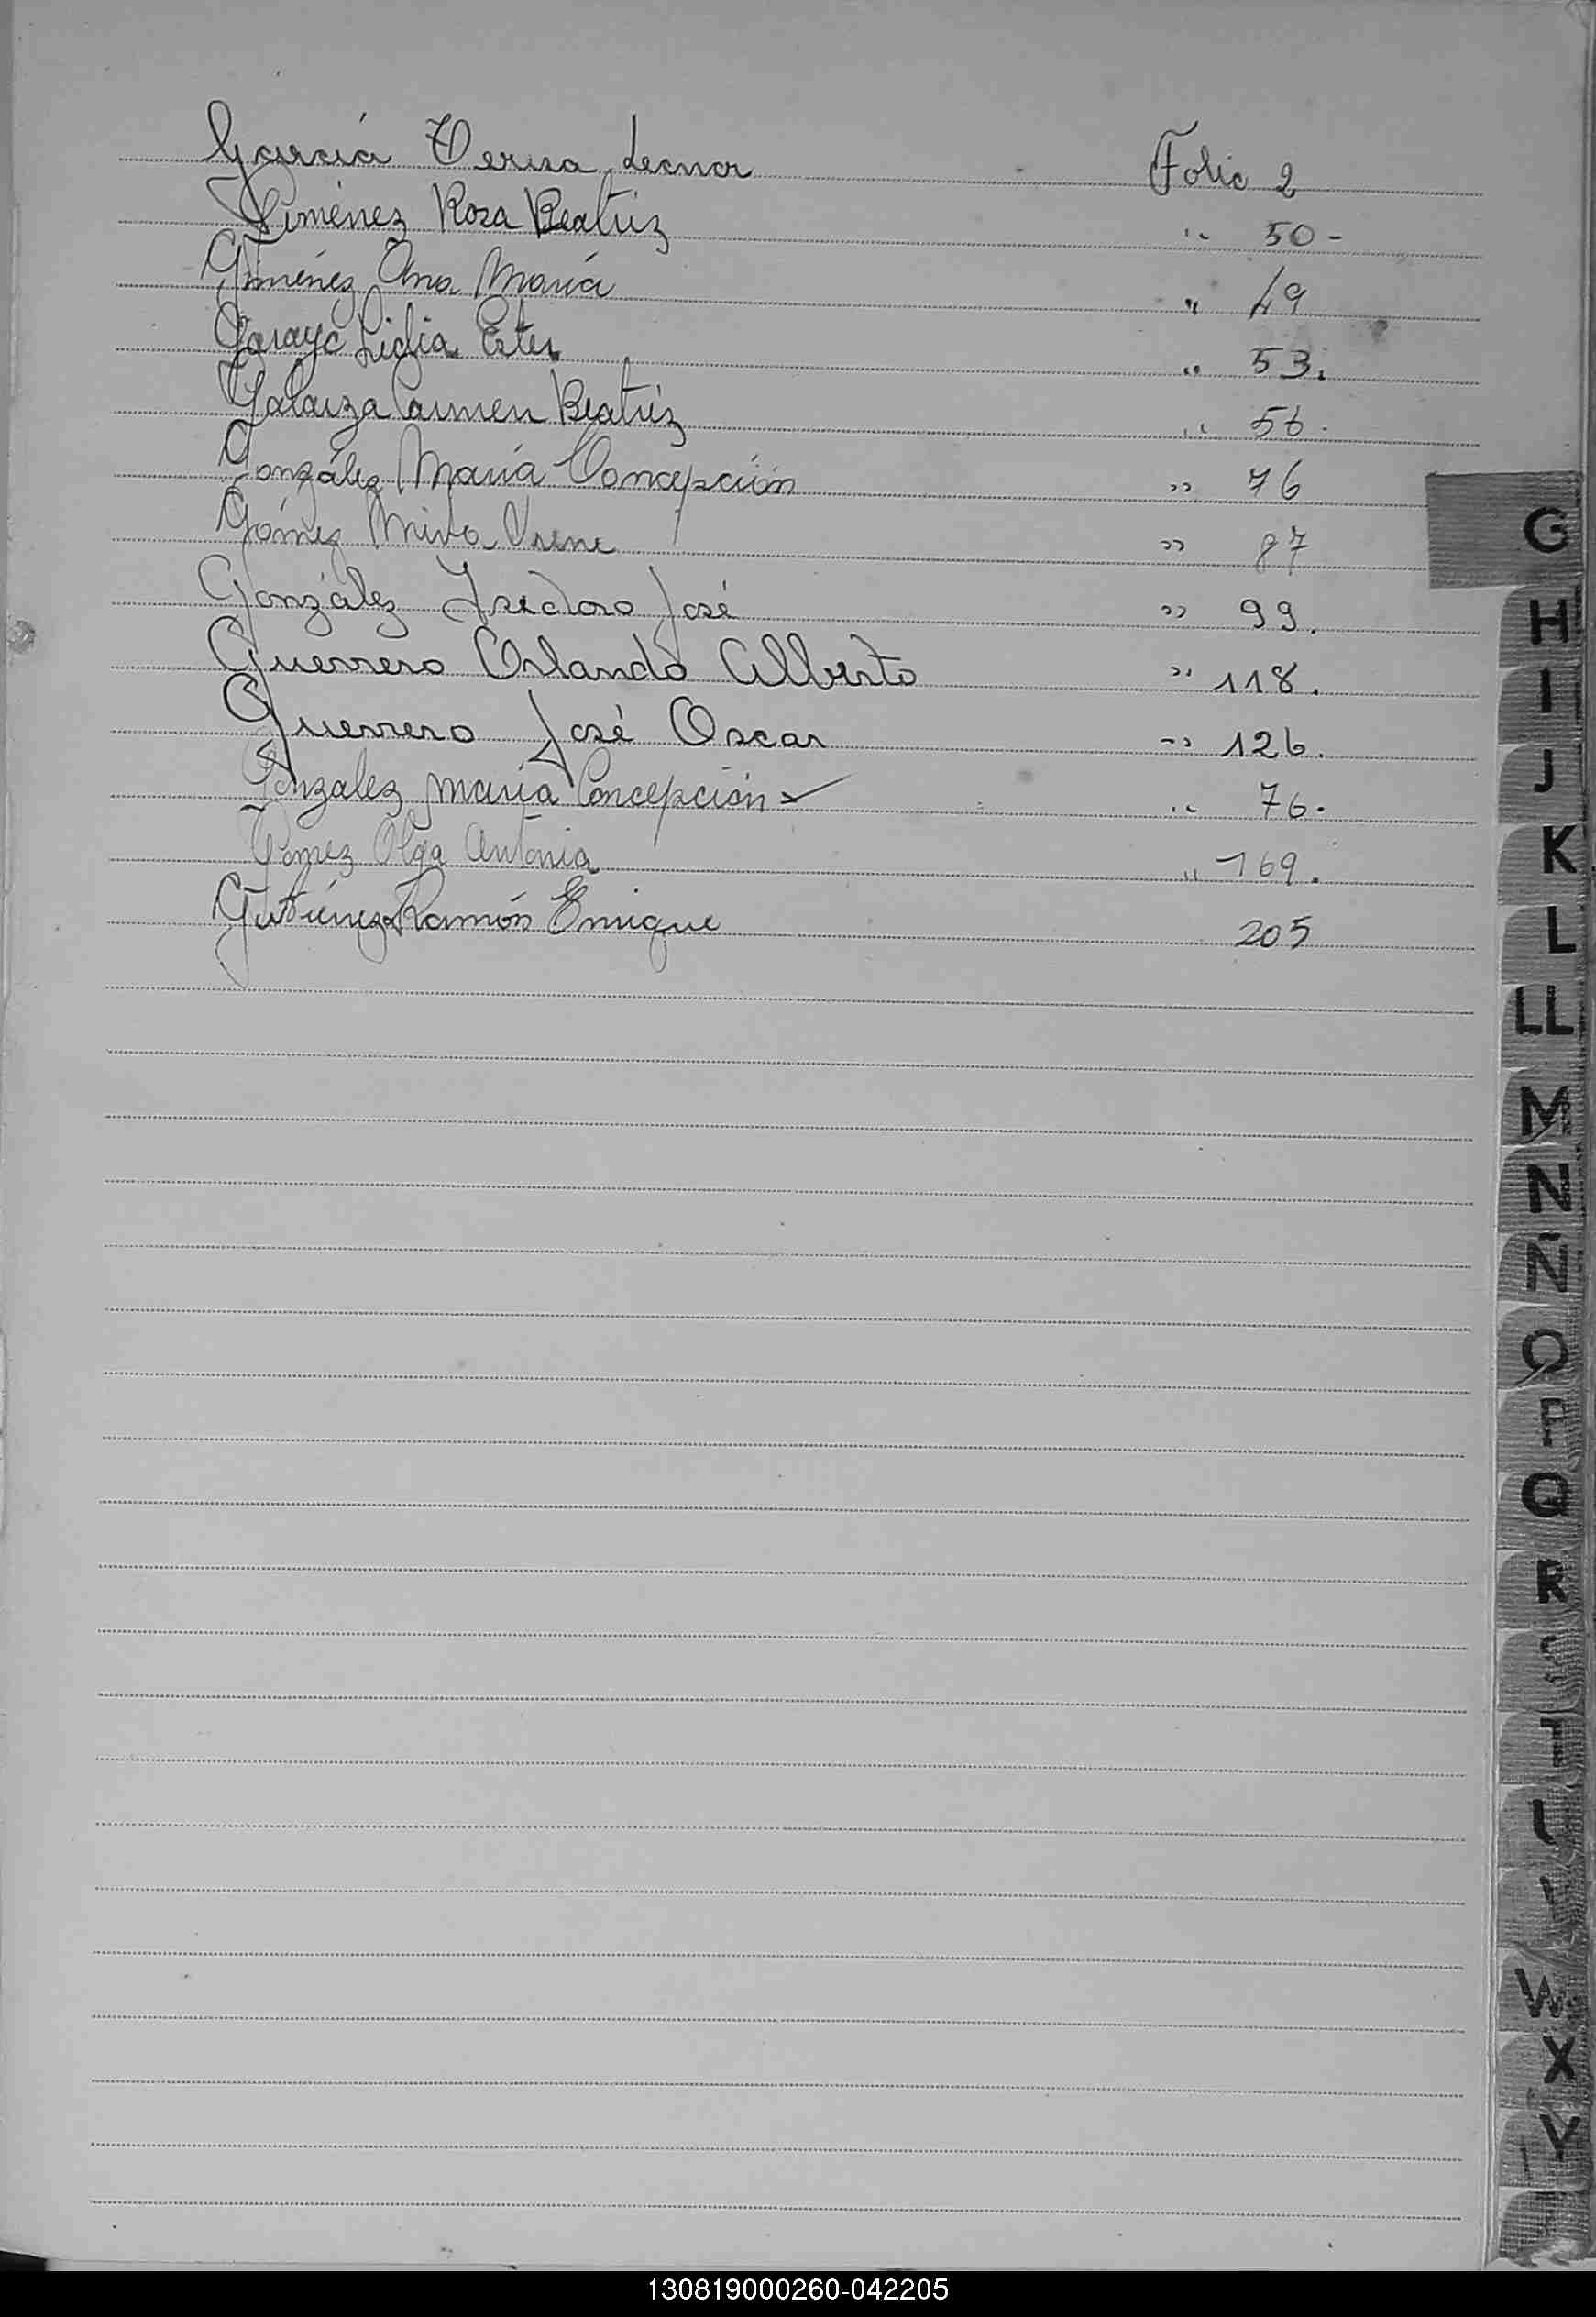 García Teresa Leonor Folio 2
Giménez Rosa Beatriz " 50-
Giménez Ana María " 49
Garayo Lidia Ester " 53.
Galarza Carmen Beatriz " 56.
González María Concepción " 76
Gómez Mirva Irene " 87
González Isidoro José " 99.
Guerrero Orlando Alberto " 118.
Guerrero José Oscar " 126.
Gonzalez María Concepción " 76.
Gomez Olga Antonia " 169.
Gutiérrez Ramón Enrique 205
G
H
I
J
K
L
LL
M
N
Ñ
O
P
Q
R
S
T
W
X
Y
130819000260-042205